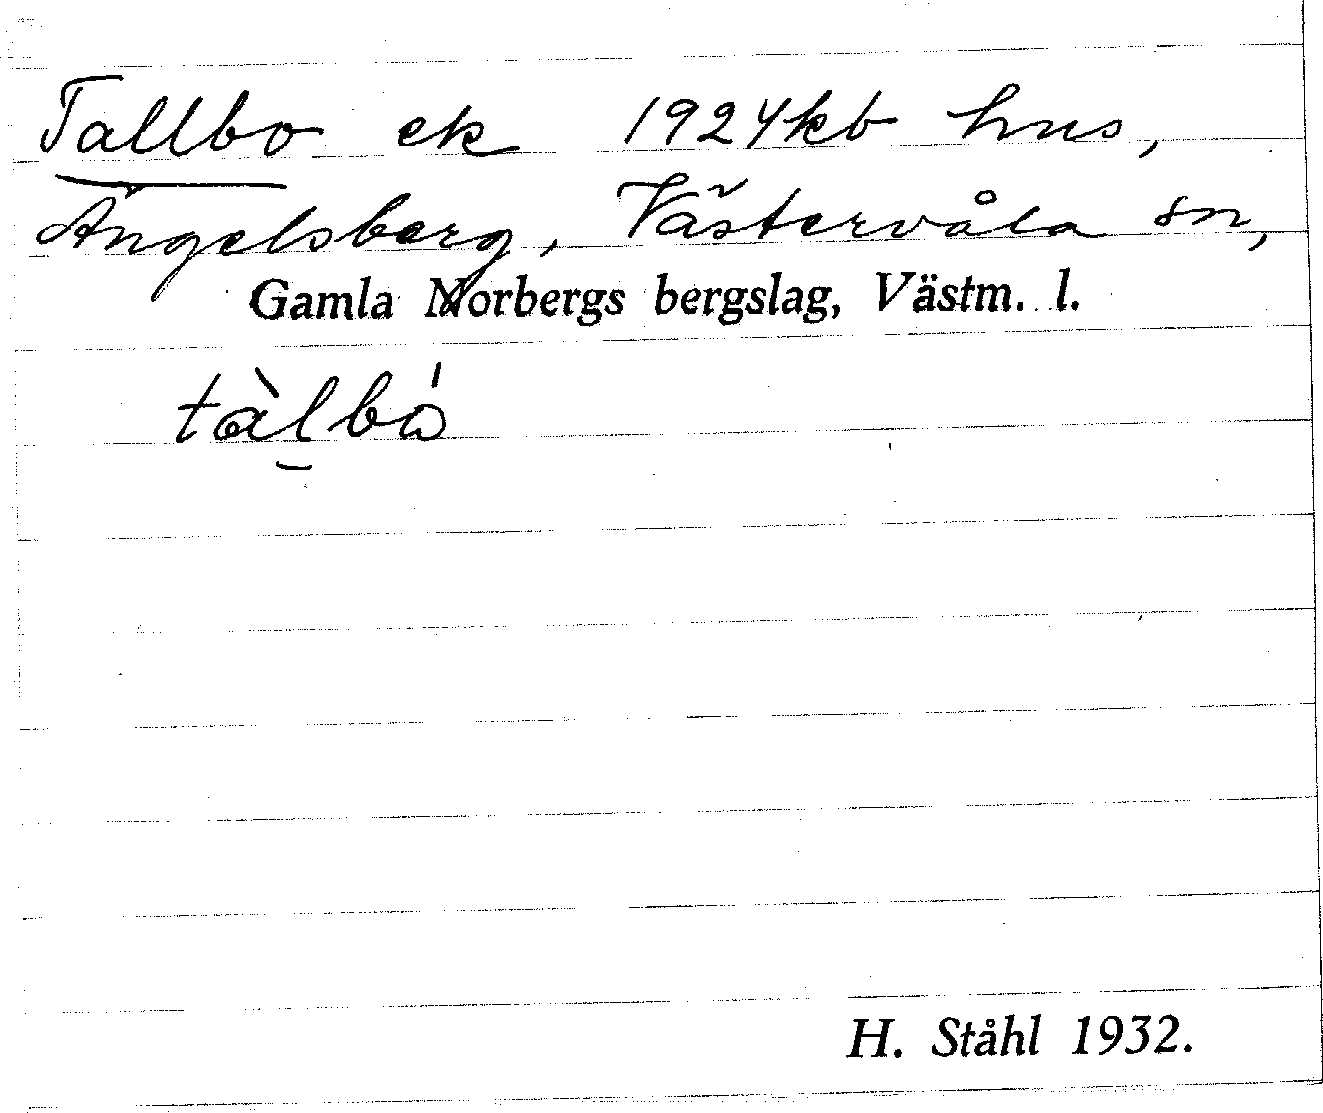 Tallbo ek 1924kb hus,
Ängelsberg, Västervåla sn,
Gamla Norbergs bergslag, Västm. l.
tàlbó
H. Ståhl 1932.